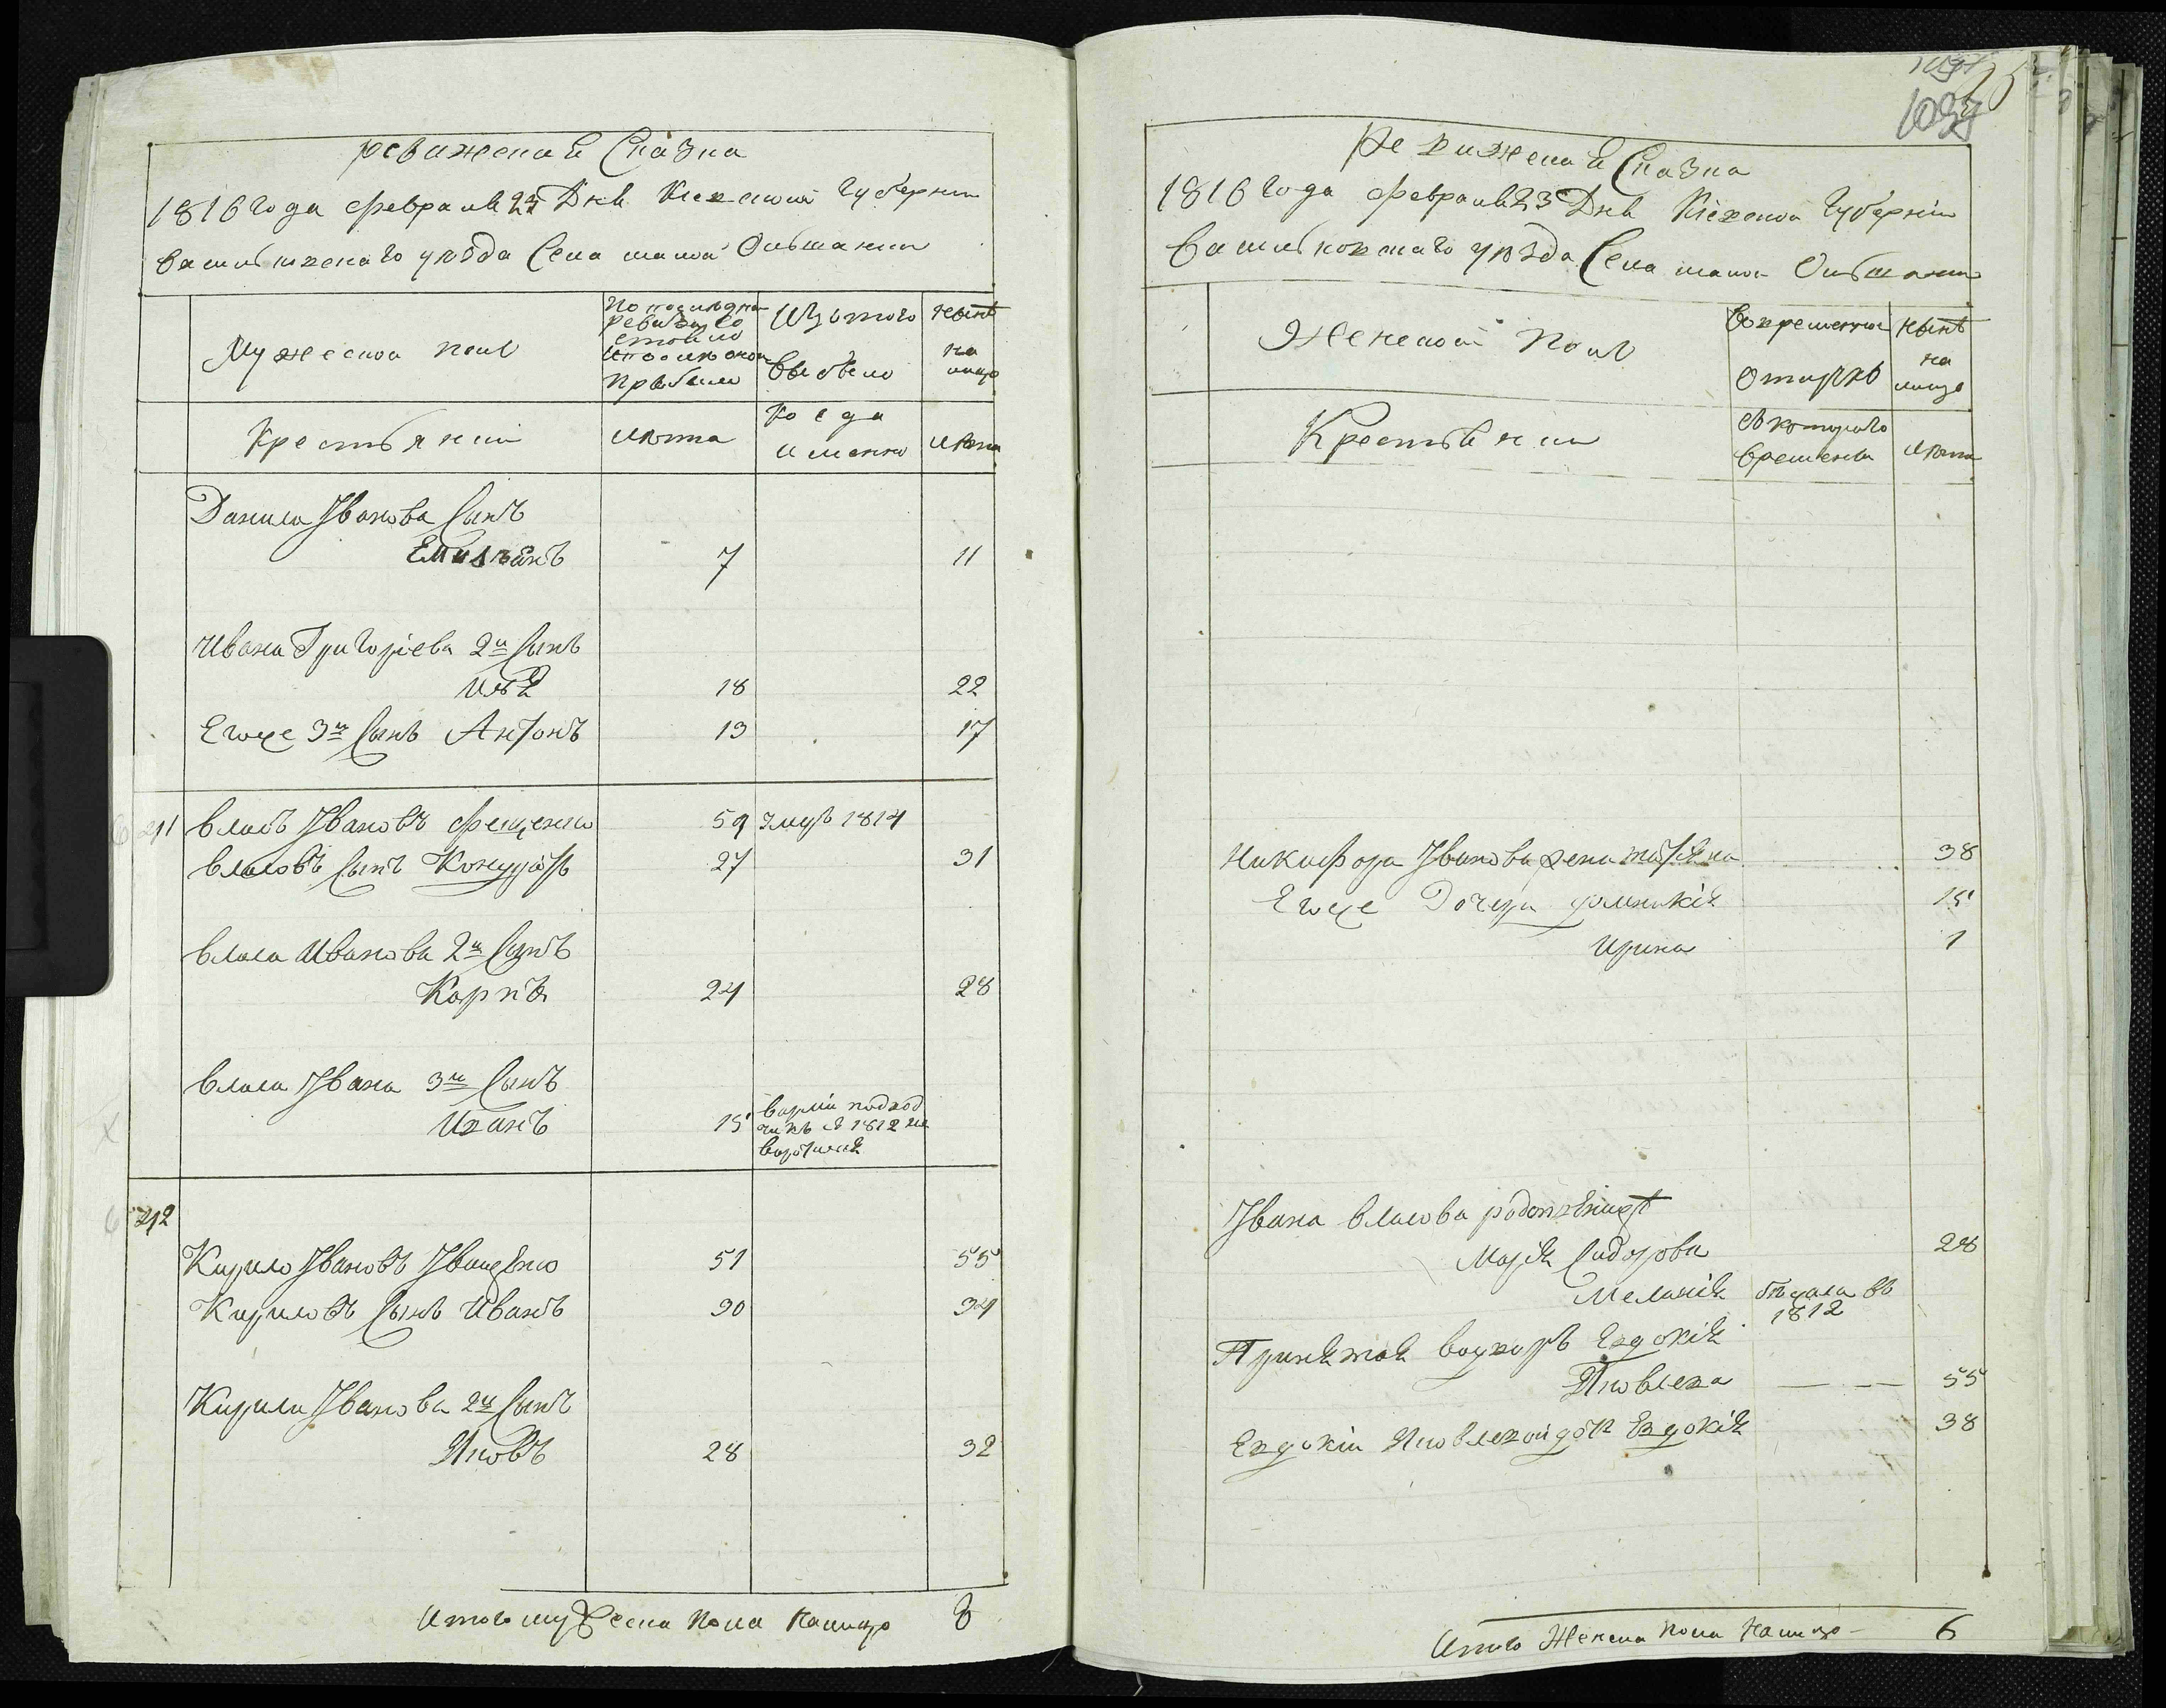 ревижская Сказка
1816 Года февраля 23 Дня Киевской Губернии
Василковскаго уѣзда Села малой Олшанки
Мужеской полъ
По последней ревизіи состояло и после оной прибыло
Изъ того выбыло
нынѣ на лицо
Крестьяне
лѣта
когда именно
лѣта
Данила Іванова Сынъ
Емильянъ 7 11
Ивана Григоріева 2й Сынъ
Илья 18 22
Егоже 3й Сынъ Антонъ 13 17
241 власъ Івановъ Фещенко 59 умеръ 1814
власовъ Сынъ Кондратъ 27 31
власа Иванова 2й Сынъ
Карпъ 24 28
власа Івана 3й Сынъ
Иванъ 15
242
Кирило Івановъ Іващенко 51 55
Кириловъ Сынъ Иванъ 30 34
Кирила Іванова 2й Сынъ
Яковъ 28 32
Итого мужеска пола налицо 8
1037
Ревижская Сказка
1816 Года февраля 23 Дня Кіевской Губерніи
Василковскаго уѣзда Села малой Олшанки
Женской полъ
Во временной отлучкѣ
нынѣ на лицо
Крестьяне
съ котораго времени
лѣта
Никифора Іванова жена Марьяна 38
Егоже Дочери домникія 15
Ирина 1
Івана власова
Марія Сидорова 28
Меланія бѣжала въ 1812
Евдокія
Яковлева — — 55
Евдокіи Яковлевой дочь Евдокія 38
Итого Женска пола налицо - 6